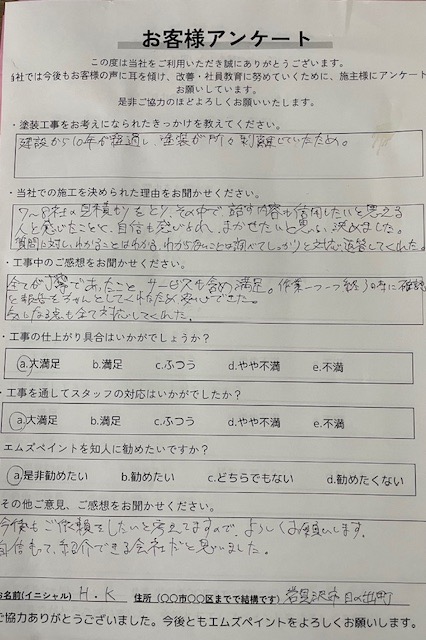 お客様アンケート
この度は当社をご利用いただき誠にありがとうございます。
当社では今後もお客様の声に耳を傾け、改善・社員教育に努めていくために、施主様にアンケート
お願いしています。
是非ご協力のほどよろしくお願いいたします。
・塗装工事をお考えになられたきっかけを教えてください。
建設から10年が経過し、塗装が所々剥離していたため。
・当社での施工を決められた理由をお聞かせください。
7〜8社の見積もりをとり、その中で話す内容も信用したいと思える
人と感じたことと、自信も感じられ、まかせたいと思い、決めました。
質問に対し、わかることはわかる、わからないことは調べてしっかりと対応、返答してくれた。
・工事中のご感想をお聞かせください。
全てが丁寧であったこと、サービスも含め満足。作業一つ一つ終う毎に確認
と報告をちゃんとしてくれたため安心できた。
気になる点も全て対応してくれた。
・工事の仕上がり具合はいかがでしょうか?
a.大満足 b.満足 c.ふつう d.やや不満 e.不満
・工事を通してスタッフの対応はいかがでしたか?
a.大満足 b.満足 c.ふつう d.やや不満 e.不満
エムズペイントを知人に勧めたいですか?
a.是非勧めたい b.勧めたい c.どちらでもない d.勧めたくない
その他ご意見、ご感想をお聞かせください。
今後もご依頼をしたいと考えてますので、よろしくお願いします。
自信もって、紹介できる会社だと思いました。
お名前(イニシャル) H・K 住所(〇〇市〇〇区までで結構です) 岩見沢市 日の出町
ご協力ありがとうございました。今後ともエムズペイントをよろしくお願いします。